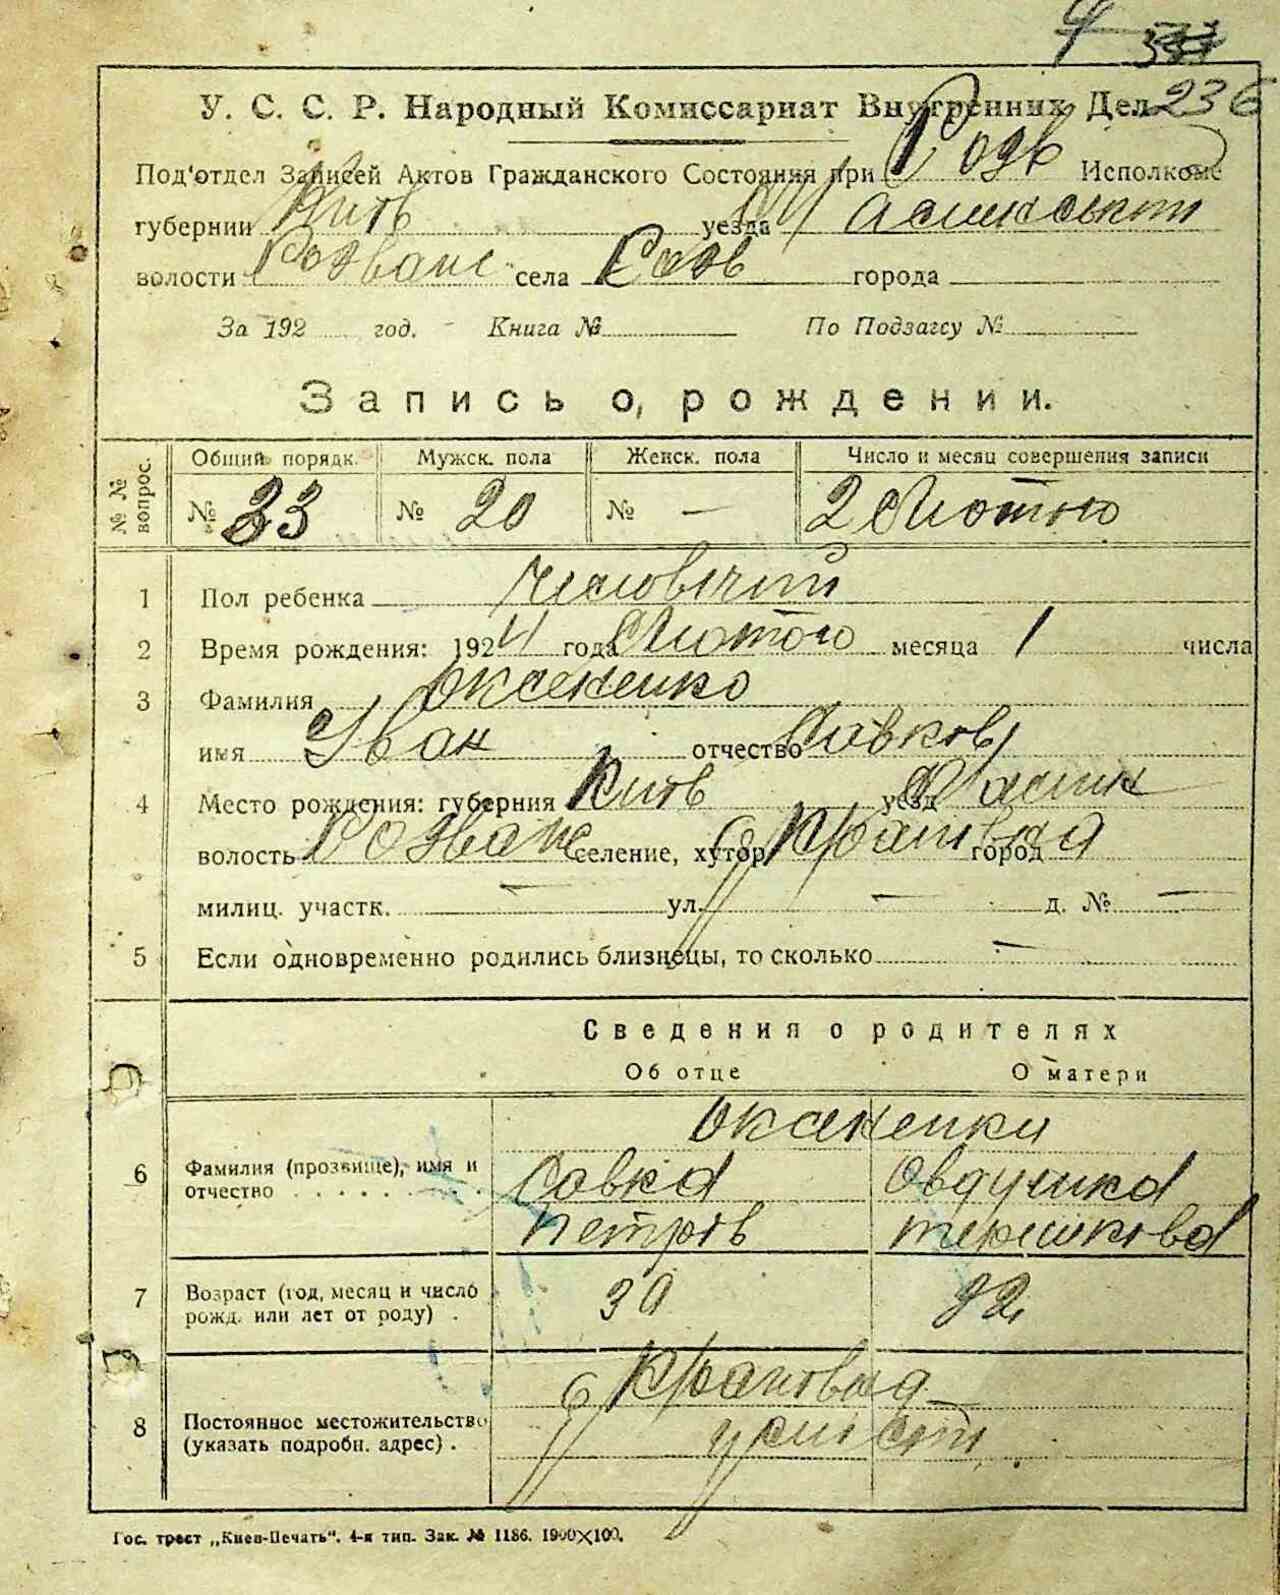 4
236
У. С. С. Р. Народный Комиссариат Внутренних Дел
Под'отдел Записей Актов Гражданского Состояния при Розв Исполкоме
губернии Київ уезда
волости Розванс села Розв города
За 192 год. Книга № По Подзагсу №
Запись о рождении.
№ № вопрос. Общий порядк. Мужск. пола Женск. пола Число и месяц совершения записи
№ 33 № 20 № — 2 Лютого
1 Пол ребенка Чсловічий
2 Время рождения: 1924 года Лютого месяца 1 числа
3 Фамилия Оксененко
имя Іван отчество Савков
4 Место рождения: губерния Київ уезд
волость Розванс селение, хутор город
милиц. участк. — ул. — д. № —
5 Если одновременно родились близнецы, то сколько —
Сведения о родителях
Об отце О матери
Оксененки
6 Фамилия (прозвище), имя и отчество Савка Овдушка
Петрів Терешкова
7 Возраст (год, месяц и число рожд. или лет от роду) . 39 22
8 Постоянное местожительство (указать подробн. адрес) .
Гос. трест „Киев-Печать". 4-я тип. Зак. № 1186. 1900×100.